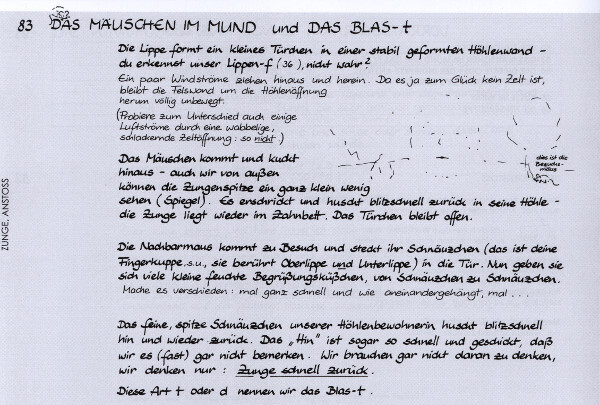 83 DAS MÄUSCHEN IM MUND und DAS BLAS-t
Die Lippe formt ein kleines Türchen in einer stabil geformten Höhlenwand -
du erkennst unser Lippen-f (36), nicht wahr?
Ein paar Windströme ziehen hinaus und herein. Da es ja zum Glück kein Zelt ist,
bleibt die Felswand um die Höhlenöffnung
herum völlig unbewegt.
(Probiere zum Unterschied auch einige
Luftströme durch eine wabbelige,
schlackernde Zeltöffnung: so nicht.)
dies ist die
Besuchs-
maus
Das Mäuschen kommt und kuckt
hinaus - auch wir von außen
können die Zungenspitze ein ganz klein wenig
sehen (Spiegel). Es erschrickt und huscht blitzschnell zurück in seine Höhle -
die Zunge liegt wieder im Zahnbett. Das Türchen bleibt offen.
Die Nachbarmaus kommt zu Besuch und steckt ihr Schnäuzchen (das ist deine
Fingerkuppe, s.u., sie berührt Oberlippe und Unterlippe) in die Tür. Nun geben sie
sich viele kleine feuchte Begrüßungsküßchen, von Schnäuzchen zu Schnäuzchen.
Mache es verschieden: mal ganz schnell und wie aneinandergehängt, mal ...
Das feine, spitze Schnäuzchen unserer Höhlenbewohnerin huscht blitzschnell
hin und wieder zurück. Das „Hin" ist sogar so schnell und geschickt, daß
wir es (fast) gar nicht bemerken. Wir brauchen gar nicht daran zu denken,
wir denken nur: Zunge schnell zurück.
Diese Art t oder d nennen wir das Blas-t.
ZUNGE, ANSTOSS